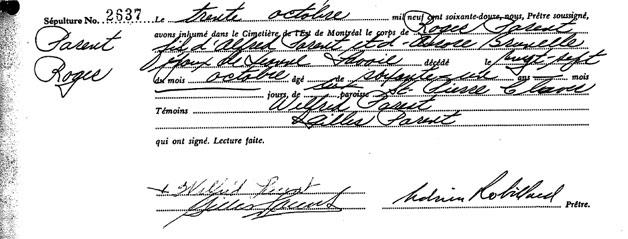 Sépulture No. 2637 Le trente octobre mil neuf cent soixante-douze, nous, Prêtre soussigné,
Parent avons inhumé dans le Cimetière de l'Est de Montréal le corps de Roger Parent
Roger fils d'Alfred Parent et d'
époux de Jeanne Savoie décédé le vingt sept
du mois octobre âgé de soixante six ans mois
jours, de paroisse St-Pierre Claver
Témoins Wilfrid Parent
& Gilles Parent
qui ont signé. Lecture faite.
Wilfrid Parent
Gilles Parent Adrien Robillard Prêtre.